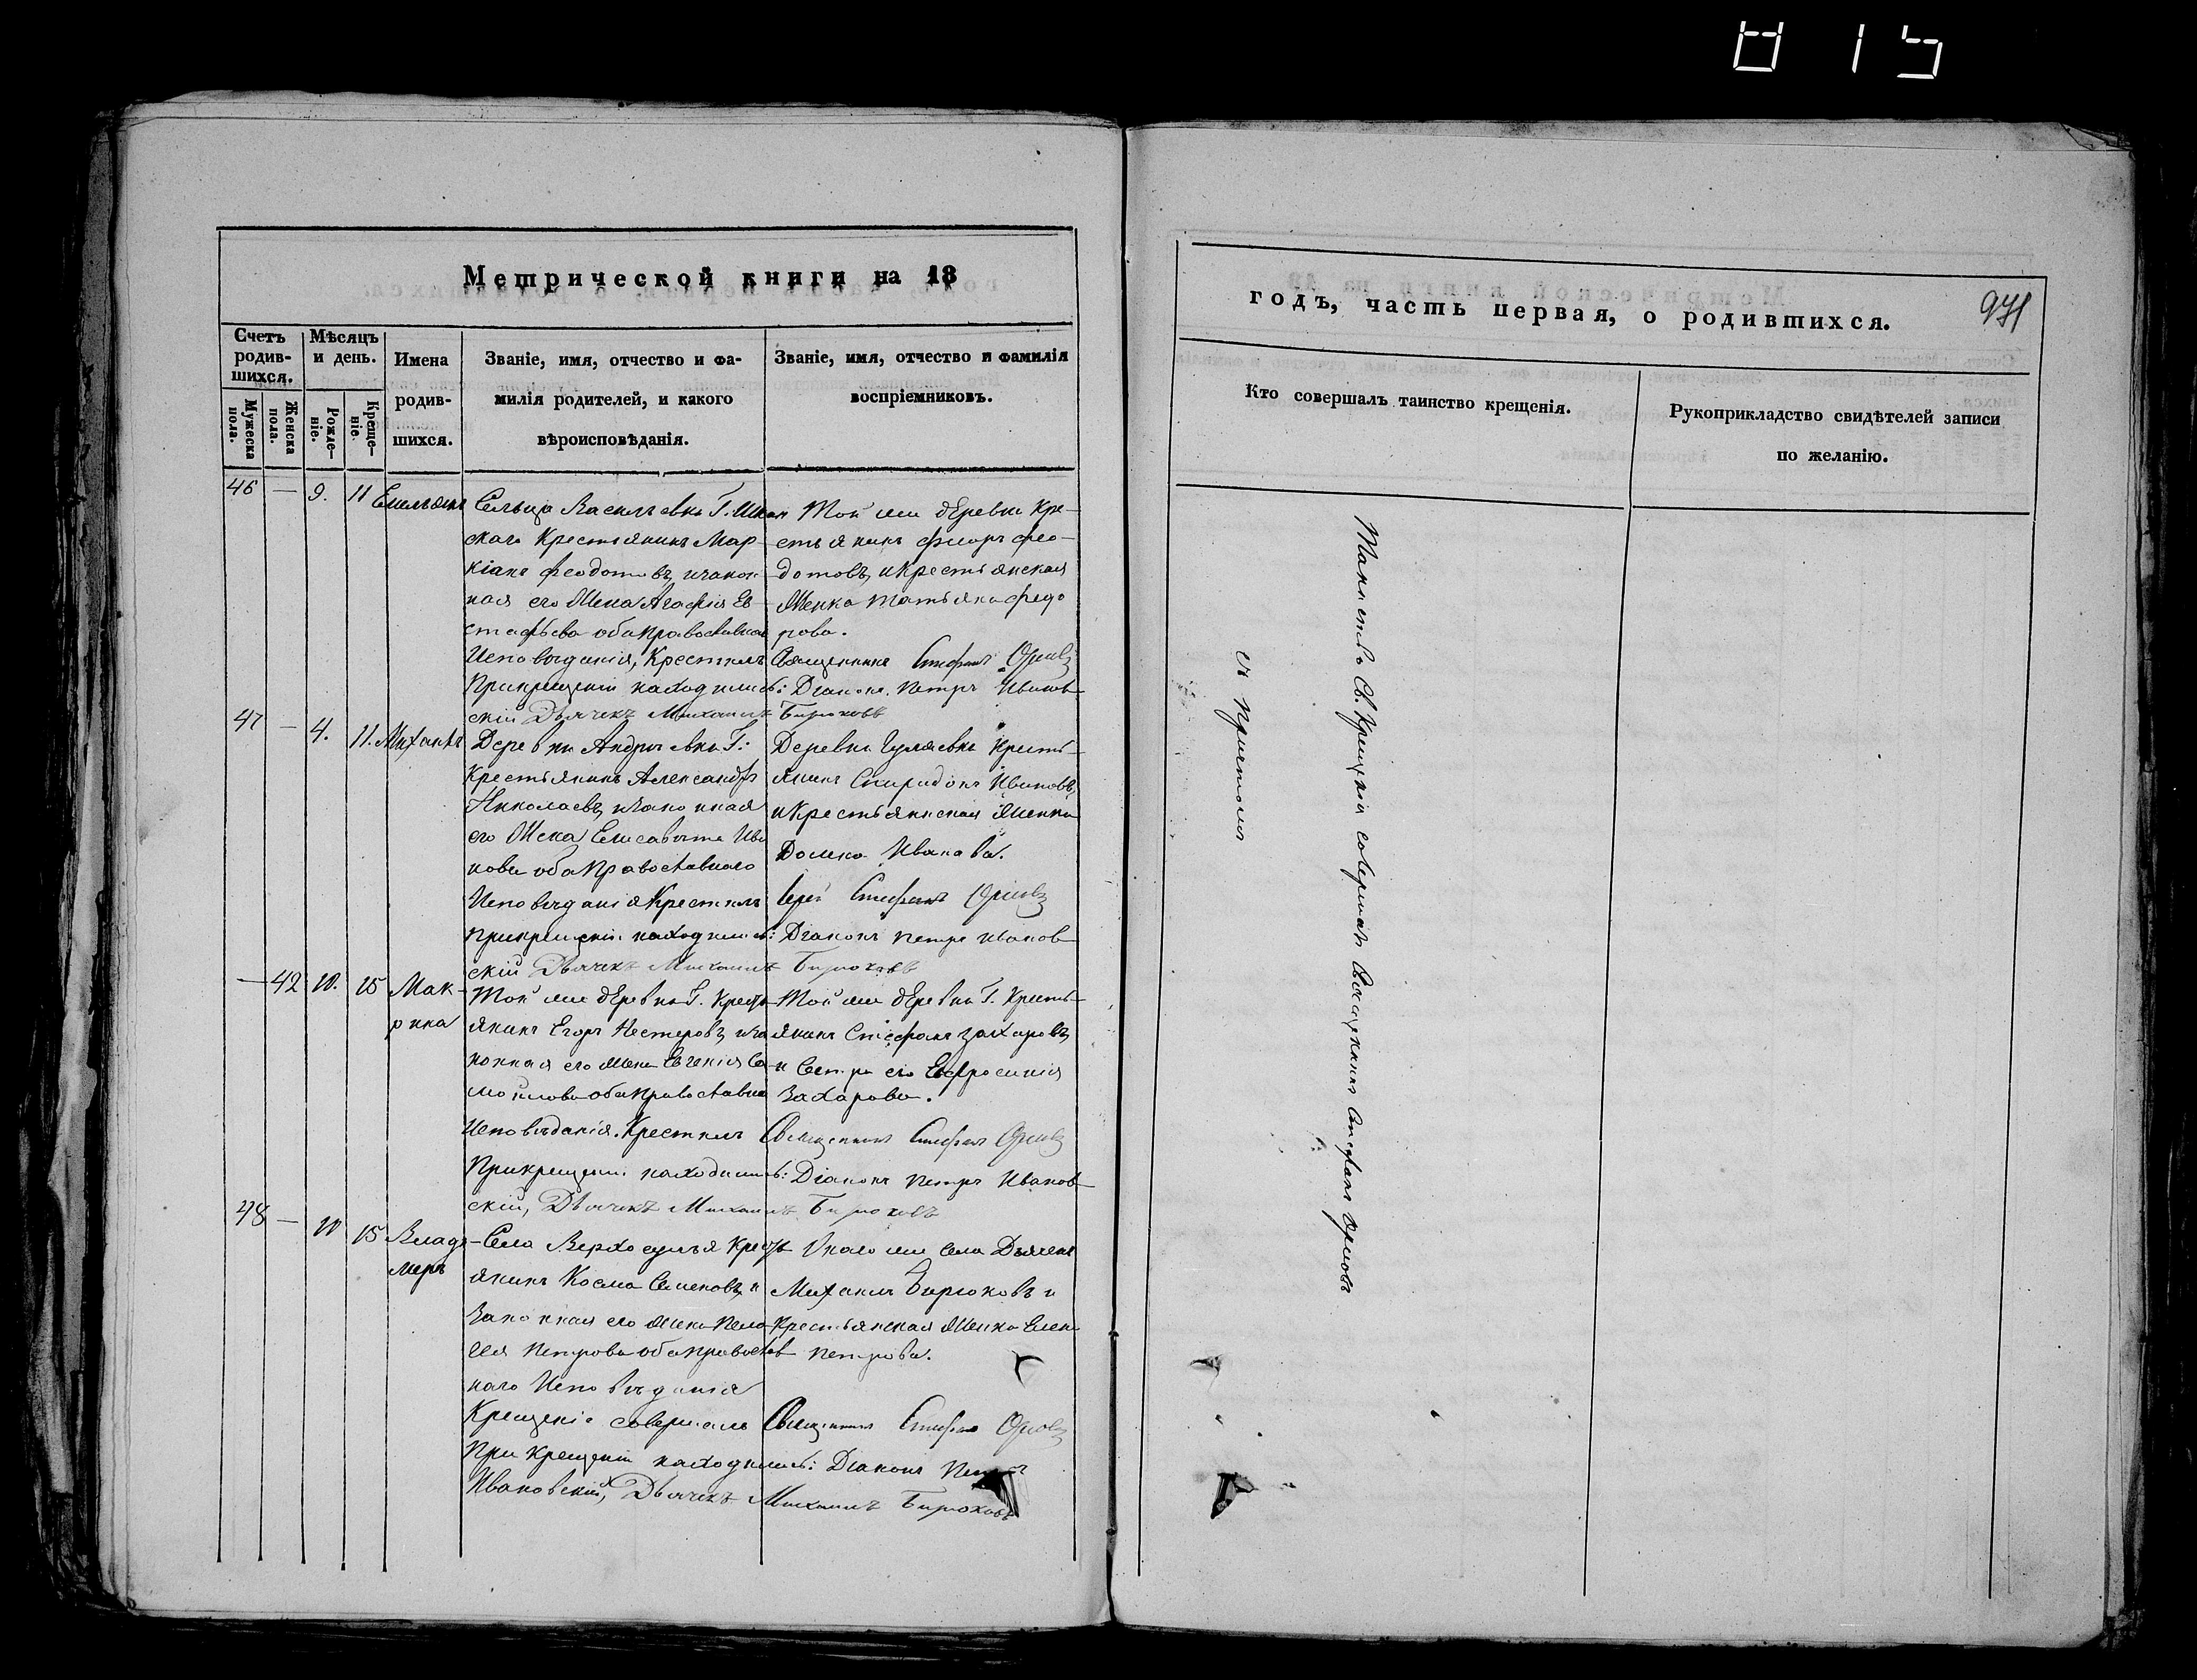 Метрической книги на 18
Счетъ родив-шихся.
Мужеска пола.
Женска пола.
Мѣсяцъ и день.
Рожде-ніе.
Креще-ніе.
Имена родив-шихся.
Званіе, имя, отчество и фа-
милія родителей, и какого
вѣроисповѣданія.
Званіе, имя, отчество и фамилія
воспріемниковъ.
46 — 9. 11 Емельянъ
Сельца Васильевки Г.
скаго Крестьянинъ Мар-
кіанъ Феодотовъ, и закон
ная его Жена Агафія Ев-
стафьева оба православнаго
Исповѣданія, Крестилъ
При крещеніи находились: Діаконъ Петръ Иванов-
скій Дьячекъ Михаилъ Бирюковъ
Той же деревни Кре-
стьянинъ Фео-
дотовъ, и Крестьянская
Женка Татьяна Федо
рова.
Священникъ Стефанъ Орловъ
47 — 4. 11. Михаилъ
Деревни Андреевки Г.
Крестьянинъ Александръ
Николаевъ, и законная
его Жена Елисавета Ива
нова оба Православнаго
Исповѣданія Крестилъ
При крещеніи находились: Діаконъ Петръ Иванов
скій Дьячекъ Михаилъ Бирюковъ
Деревни Гуляевки Кресть-
янинъ Спиридонъ Ивановъ,
и Крестьянская Женка
Домна Иванова.
Іерей Стефанъ Орловъ
— 42 10. 15 Мак-
рина
Той же деревни Г. Кресть
янинъ Егоръ Нестеровъ, и за
конная его Жена Евгенія Са-
мойлова оба Православнаго
Исповѣданія. Крестилъ
При крещеніи находились: Діаконъ Петръ Иванов-
скій, Дьячекъ Михаилъ Бирюковъ
Той же деревни Г. Кресть-
янинъ Стефанъ Захаровъ,
и Сестра его Евфросинія
Захарова.
Священникъ Стефанъ Орловъ
48 — 10 15 Влади-
меръ
Села Верхосулья Кресть
янинъ Косма Семеновъ, и
Законная его Жена Пела
гея Петрова оба православ
наго Исповѣданія
Крещеніе совершалъ Священникъ Стефанъ Орловъ
При крещеніи находились: Діаконъ Петръ
Ивановскій, Дьячекъ Михаилъ Бирюковъ
Онаго же села Дьячекъ
Михаилъ Бирюковъ и
Крестьянская Женка Елена
Петрова.
годъ, часть первая, о родившихся.
971
Кто совершалъ таинство крещенія.
Рукоприкладство свидѣтелей записи
по желанію.
Таинство Св. Крещенія совершалъ Священникъ Стефанъ Орловъ
съ причтомъ